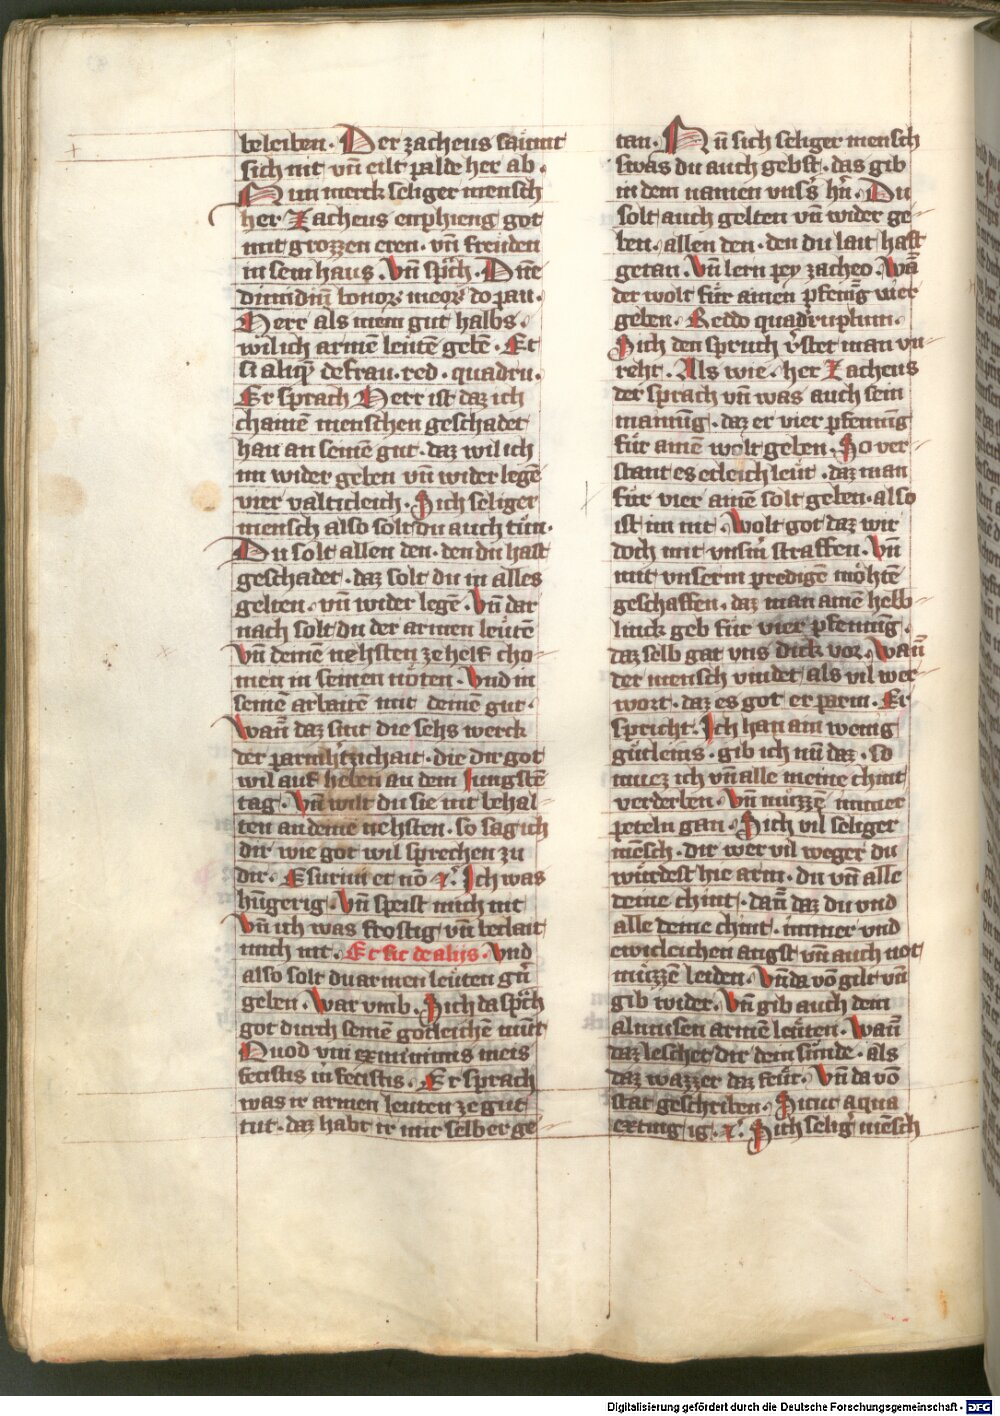 beleiben. Der zacheus saumt
sich nit vñ eilt palde her ab.
Nim merck seliger mensch
her Zacheus emphieng got
mit grozzen eren. vñ freuden
in sein haus. Vñ sprch. Dñe
dimidiũ bonorͣ meorͣ do pau.
Herr als mein gut halbs.
wil ich armē leutē gebē. Et
si aliqͥ defrau. red. quadru.
Er sprach Herr ist daz ich
chainē menschen geschadet
han an seinē gut. daz wil ich
im wider geben vñ wider legē
vier valticleich. Sich seliger
mensch also solt du auch tün.
Du solt allen den. den du hast
geschadet. daz solt du in alles
gelten. vñ wider legē. Vñ dar
nach solt du der armen leütē
Vñ deinē nehsten ze helf cho-
men in seinen nöten. Vnd in
seinē arbaitē mit deinē gut.
Wañ daz sint die sehs werck
der parmhͥtzichait. die dir got
wil auf heben an dem Jungstē
tag. Vñ wilt du sie nit behal-
ten an deinē nehsten. so sag ich
dir wie got wil sprechen zu
dir. Esuriui et nō rͣ. Ich was
hũgerig. Vñ speist mich nit
Vñ ich was frostig vñ beclait
mich nit. Et sic de alijs. Vnd
also solt du armen leüten gũ
geben. War vmb. Sich da sprch
got durch seinē götleichē mũt
Quod vni ex minimis meis
fecistis m̄ fecistis. Er sprach
was ir armen leuten ze gut
tut. daz habt ir mir selber ge
tan. Nũ sich seliger mensch
swas du auch gebst. das gib
in dem namen vnsͥs hñ. Du
solt auch gelten vñ wider ge-
ben. allen den. den du lait hast
getan. Vñ lern pey zacheo. Wañ
der wolt für ainen pfenĩg vier
geben. Reddo quadruplum.
Sich den spruch vͥstet man vn
reht. Als wie. her Zacheus
der sprach vñ was auch sein
mainũg. daz er vier pfennĩg
für ainē wolt geben. So ver-
stant es etleich leüt. daz man
für vier ainē solt geben. also
ist im nit. Wolt got daz wir
doch mit vnsͥm straffen. Vñ
mit vnserm predigē möhtē
geschaffen. daz man ainē helb-
linck geb für vier pfennĩg.
daz selb gat vns dick vor. Wañ
der mensch vindet als vil wer-
wort. daz es got er parm. Er
spricht. Ich han ain wenig
gütleins. gib ich nũ daz. so
muez ich vñ alle meine chint
verderben. Vñ müzzē immer
peteln gan. Sich vil seliger
mēsch. dir wer vil weger du
würdest hie arm. du vñ alle
deine chint. dañ daz du vnd
alle deine chint. immer vnd
ewicleichen angst vñ auch not
müzzē leiden. Vñ da vō gilt vñ
gib wider. Vñ gib auch dein
almusen armē leüten. Wañ
daz leschet dir dein sünde. als
daz wazzer daz feür. Vñ da vō
stat geschriben. Sicut aqua
exting ig. rͣ. Sich seligͥ mēsch
Digitalisierung gefördert durch die Deutsche Forschungsgemeinschaft - DFG